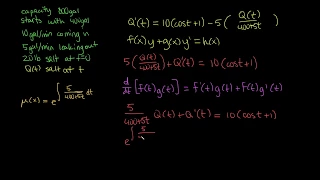 capacity 800gal
starts with 400gal
10gal/min coming in
5gal/min leaking out
20lb salt at t=0
Q(t) salt at t
μ(x) = e^∫ 5/(400+5t) dt
Q'(t) = 10(cost+1) - 5(Q(t)/(400+5t))
f(x)y + g(x)y' = h(x)
5(Q(t)/(400+5t)) + Q'(t) = 10(cost+1)
d/dt [f(t)g(t)] = f'(t)g(t) + f(t)g'(t)
5/(400+5t) Q(t) + Q'(t) = 10(cost+1)
e^∫ 5/